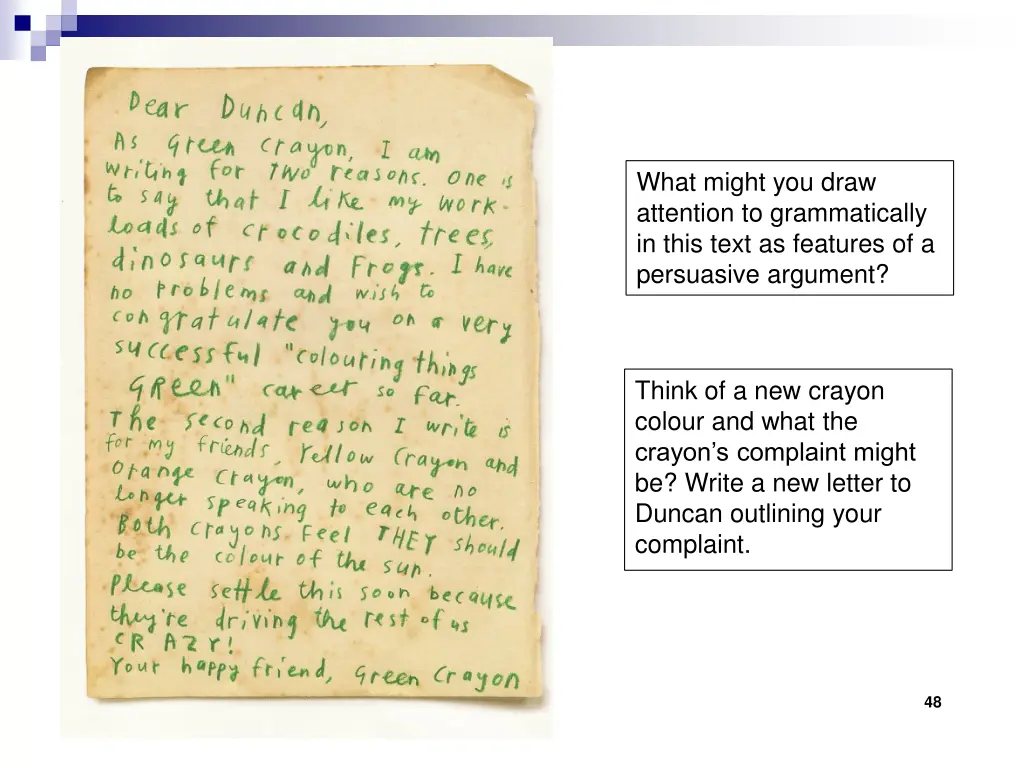 Dear Duncan,
As Green Crayon, I am
writing for TWO reasons. One is
to say that I like my work-
loads of crocodiles, trees,
dinosaurs and Frogs. I have
no problems and wish to
congratulate you on a very
successful "colouring things
GReen" career so far.
The second reason I write is
for my friends, Yellow Crayon and
Orange Crayon, who are no
longer speaking to each other.
Both crayons feel THEY should
be the colour of the sun.
Please settle this soon because
they're driving the rest of us
CRAZY!
Your happy friend, Green Crayon
What might you draw
attention to grammatically
in this text as features of a
persuasive argument?
Think of a new crayon
colour and what the
crayon's complaint might
be? Write a new letter to
Duncan outlining your
complaint.
48